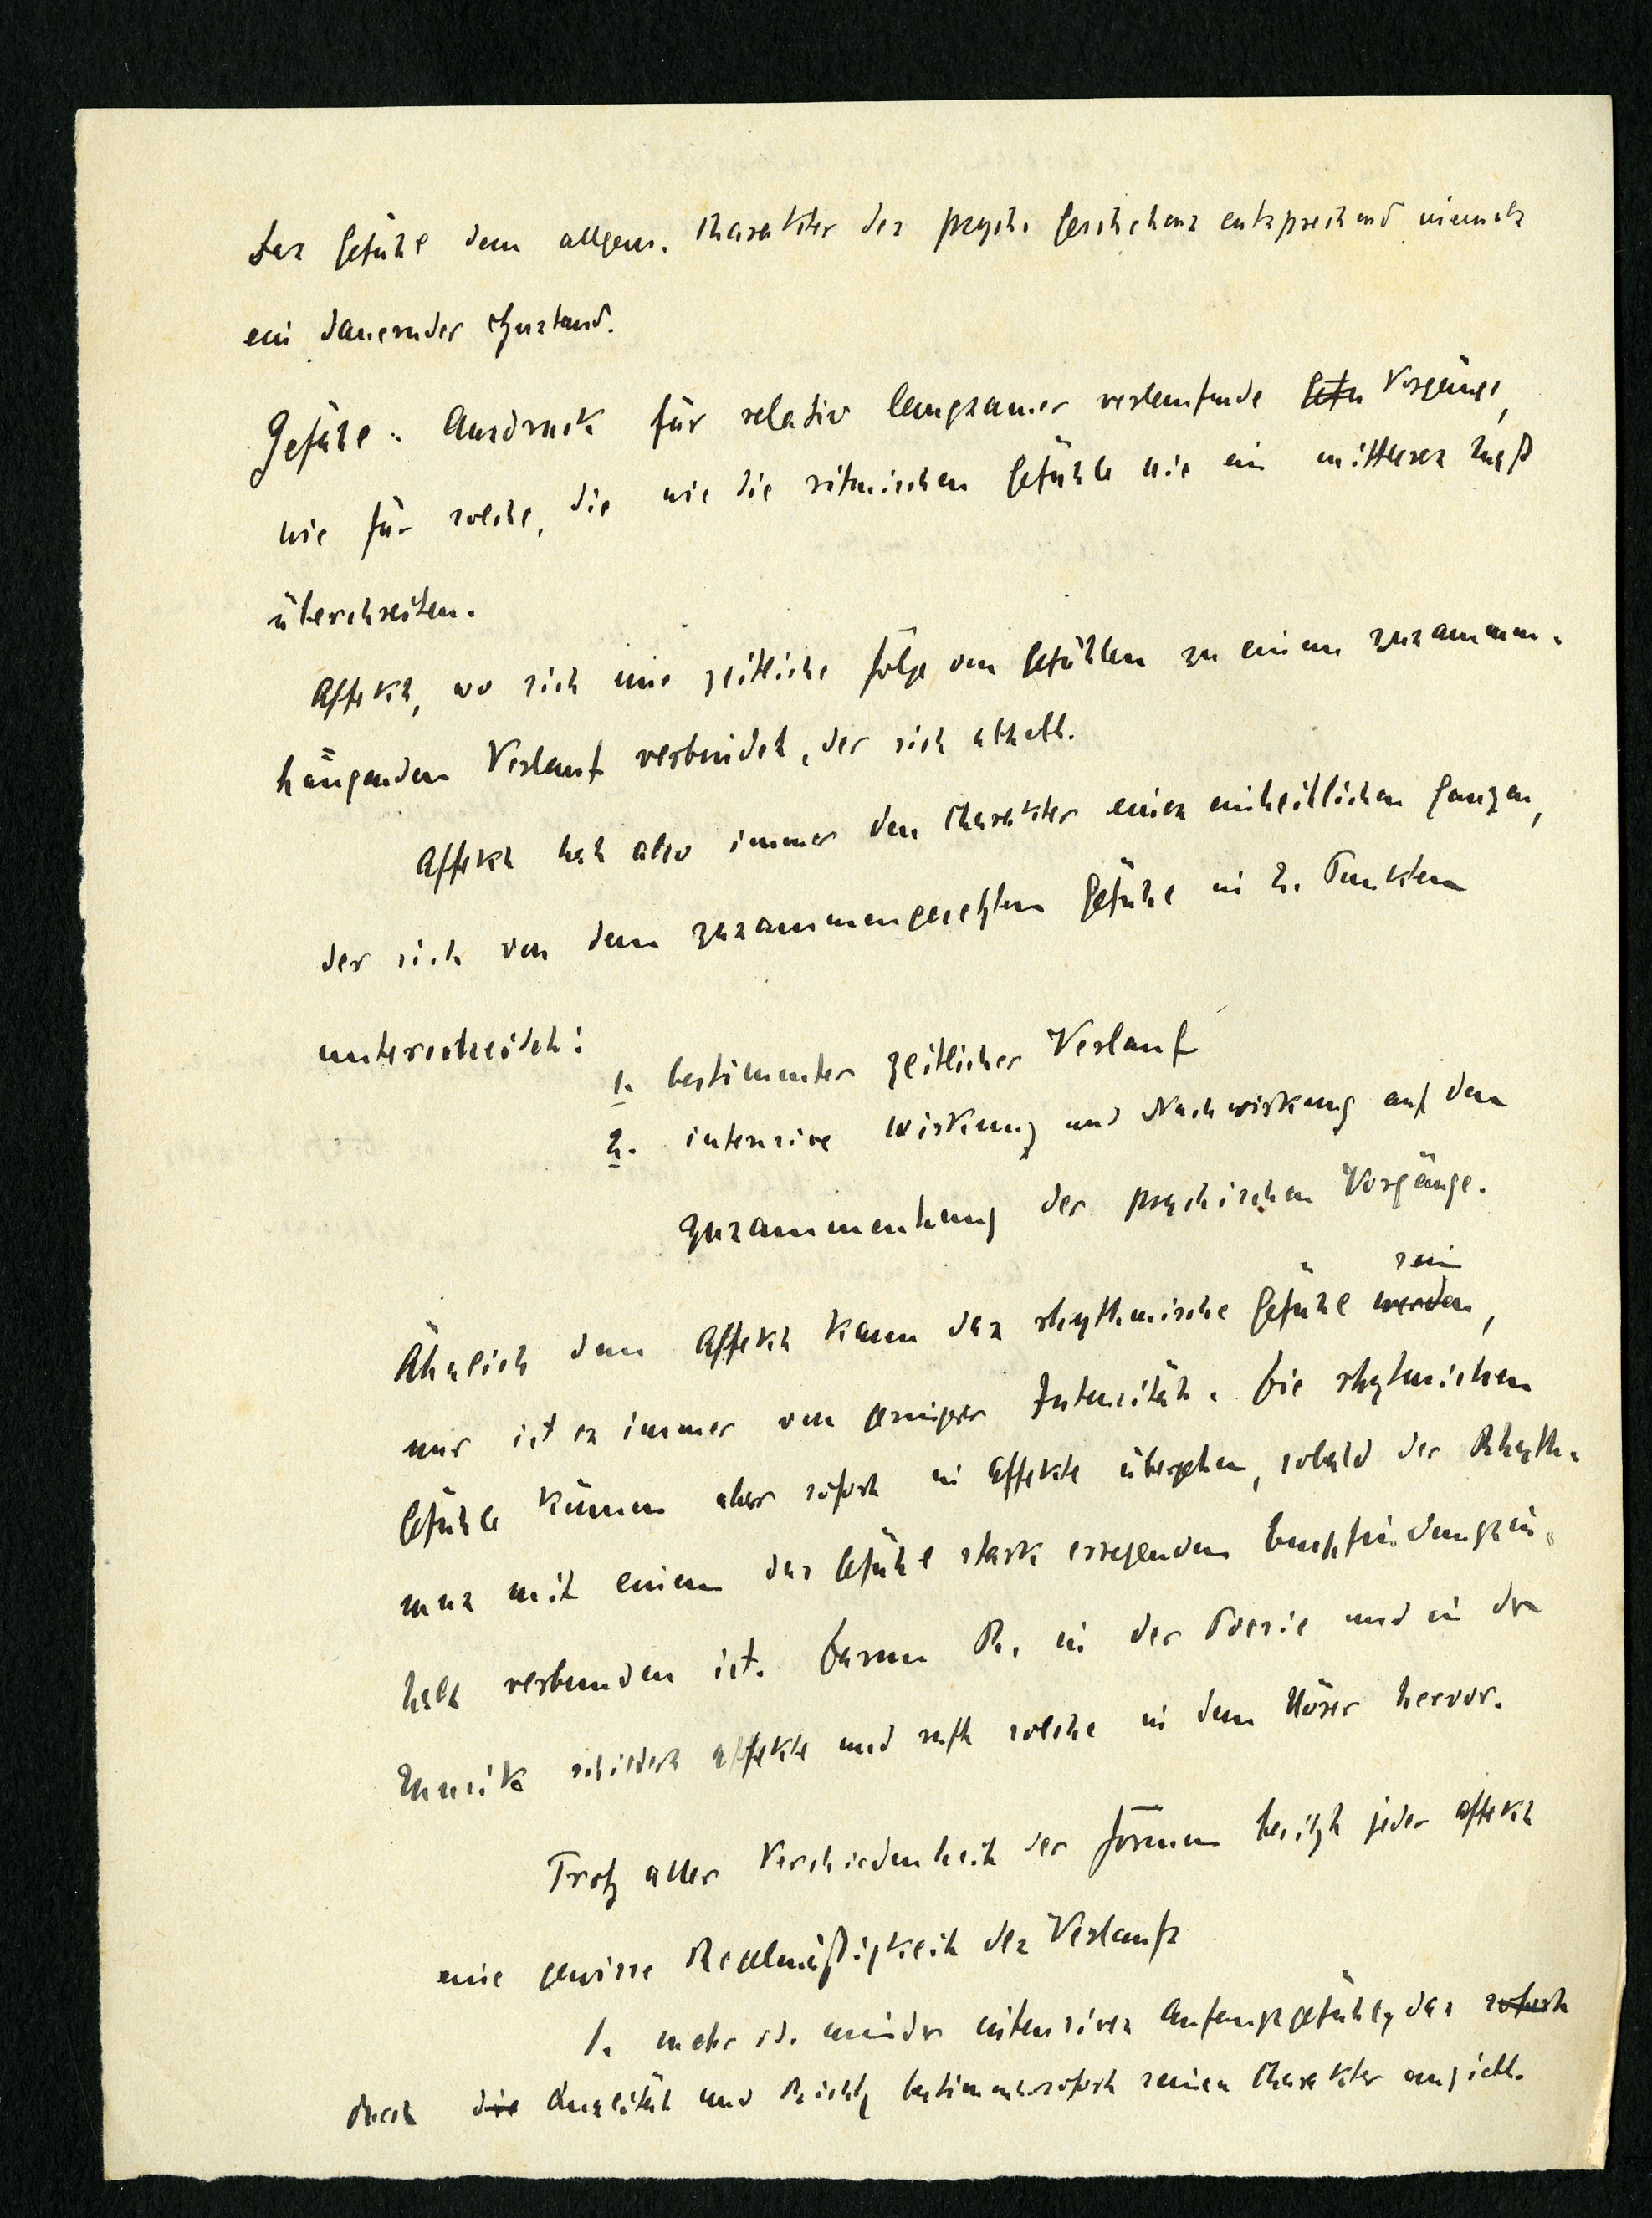 Das Gefühl dem allgem. Charakter des psych. Geschehens entsprechend niemals
ein dauernder Zustand.
Gefühl: Ausdruck für relativ langsamer verlaufende Gefü Vorgänge,
wie für solche, die wie die ritmischen Gefühle nie ein mittleres Maß
überschreiten.
Affekt, wo sich eine zeitliche Folge von Gefühlen zu einem zusammen-
hängenden Verlauf verbindet, der sich abhebt.
Affekt hat also immer den Charakter eines einheitlichen Ganzen,
der sich von dem zusammengesetzten Gefühl in 2. Punkten
unterscheidet:
1. bestimmter zeitlicher Verlauf
2. intensive Wirkung und Nachwirkung auf den
Zusammenhang der psychischen Vorgänge.
sein
Ähnlich dem Affekt kann das rhythmische Gefühl werden,
nur ist es immer von geringer Intensität. Die rhytmischen
Gefühle können aber sofort in Affekte übergehen, sobald der Rhyth-
mus mit einem das Gefühl stark erregenden Empfindungsin-
halt verbunden ist. Darum R. in der Poesie und in der
Musik schildert Affekte und ruft solche in dem Hörer hervor.
Trotz aller Verschiedenheit der Formen besitzt jeder Affekt
eine gewisse Regelmäßigkeit des Verlaufs
1. mehr od. minder intensives Anfangsgefühl, das sofort
durch die Qualität und Richtg bestimmt sofort seinen Charakter angiebt.